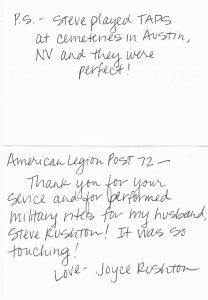 P.S. - Steve played TAPS
at cemeteries in Austin,
NV and they were
perfect!
American Legion Post 72 —
Thank you for your
service and for performed
military rites for my husband,
Steve Rushton! It was so
touching!
Love - Joyce Rushton